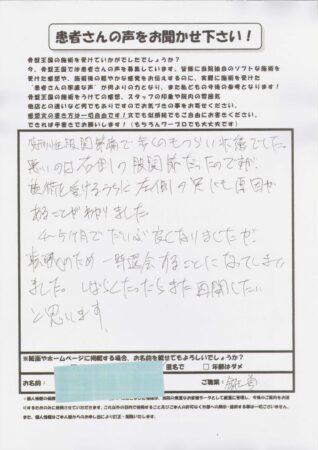 患者さんの声をお聞かせ下さい！
骨盤王国の施術を受けていかがでしたでしょうか？
今、骨盤王国では患者さんの声を募集しています。皆様に当院独自のソフトな施術を
受けた感想や、施術後の軽やかな感覚をお伝えするのに、実際に施術を受けた
“患者さんの率直な声”が何よりの力となり、また私どもの今後の参考となります！
骨盤王国の施術をうけての感想、スタッフの印象や院内の雰囲気
他店との違いなど何でもありですのでお気づきの事をお寄せください。
感想文の書き方は一切自由です！文でも似顔絵でもご自由にお書きください。
できれば手書きでお願いします！（もちろんワープロでも大丈夫です）
変形性股関節痛で歩くのもつらい状態でした。
悪いのは右側の股関節だったのですが、
施術を受けるうちに左側の
あることがわかりました。
4〜5ヶ月でだいぶ良くなりましたが、
のため一時退会することになってしまい
ました。しばらくしたらまた再開したい
と思います。
※紙面やホームページに掲載する場合、お名前を載せてもよろしいでしょうか？
匿名で □ 年齢はダメ
お名前：
ご職業：
＊個人情報の保護について